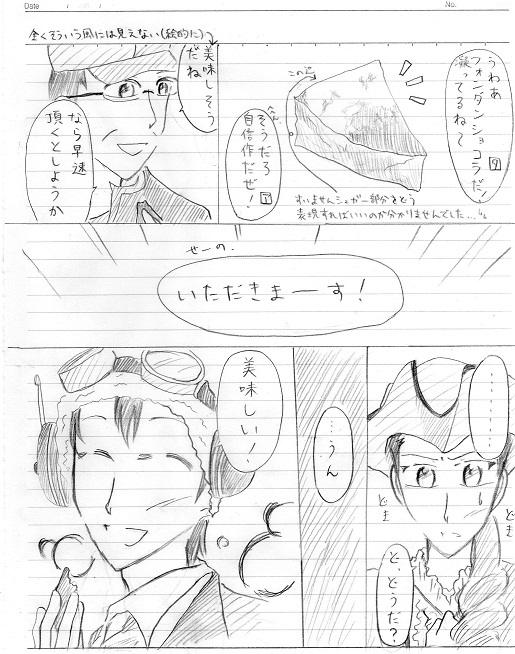 Date
No.
全くそういう風には見えない(絵的に)
うわあ
フォンダンショコラだ、
凝ってるねて
この辺
へへん
そうだろ
自信作だぜ!
すいませんシュガー部分をどう
表現すればいいのか分かりませんでした…
美味しそう
だね
なら早速
頂くとしようか
せーの、
いただきまーす!
…………
どき
どき
ど、どうだ?
…うん
美味しい!